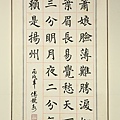 蕭娘臉薄難勝淚桃
葉眉長易覺愁天下
三分明月夜二分無
賴是揚州